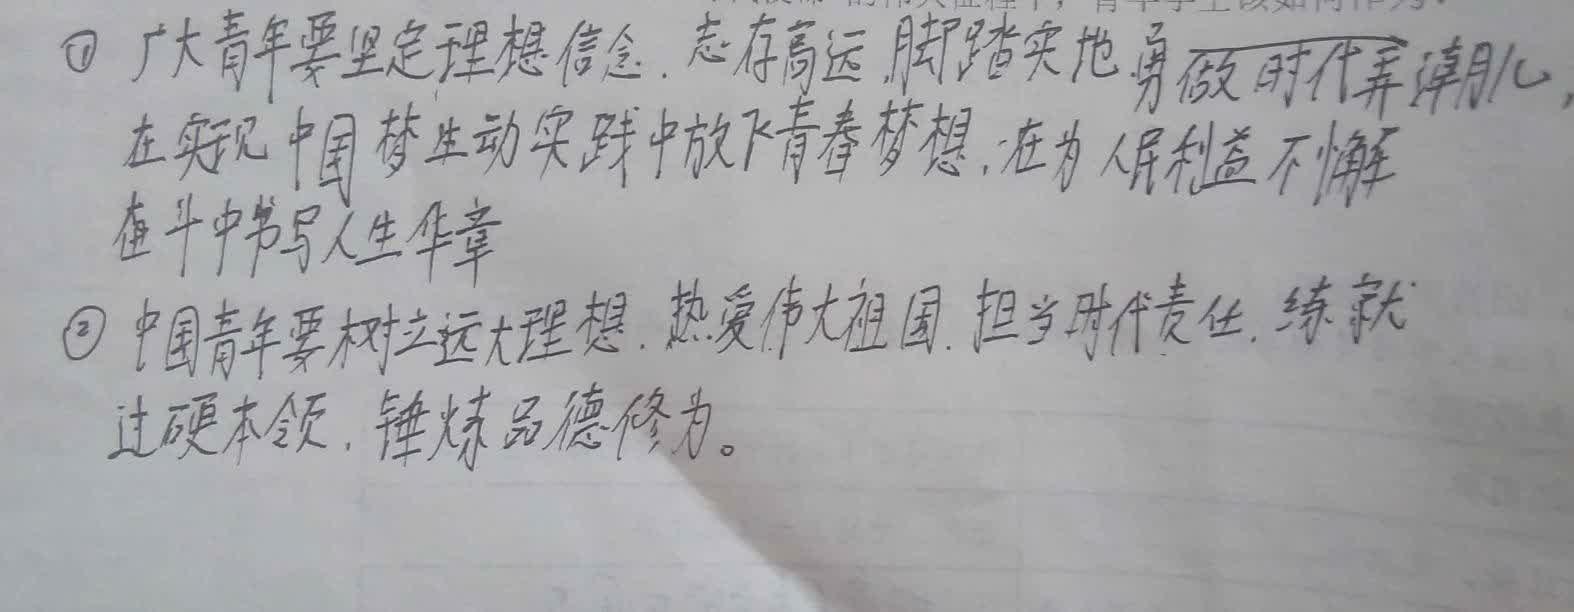 ① 广大青年要坚定理想信念、志存高远、脚踏实地、勇做时代弄潮儿,
在实现中国梦生动实践中放飞青春梦想,在为人民利益不懈
奋斗中书写人生华章
② 中国青年要树立远大理想、热爱伟大祖国、担当时代责任、练就
过硬本领、锤炼品德修为。